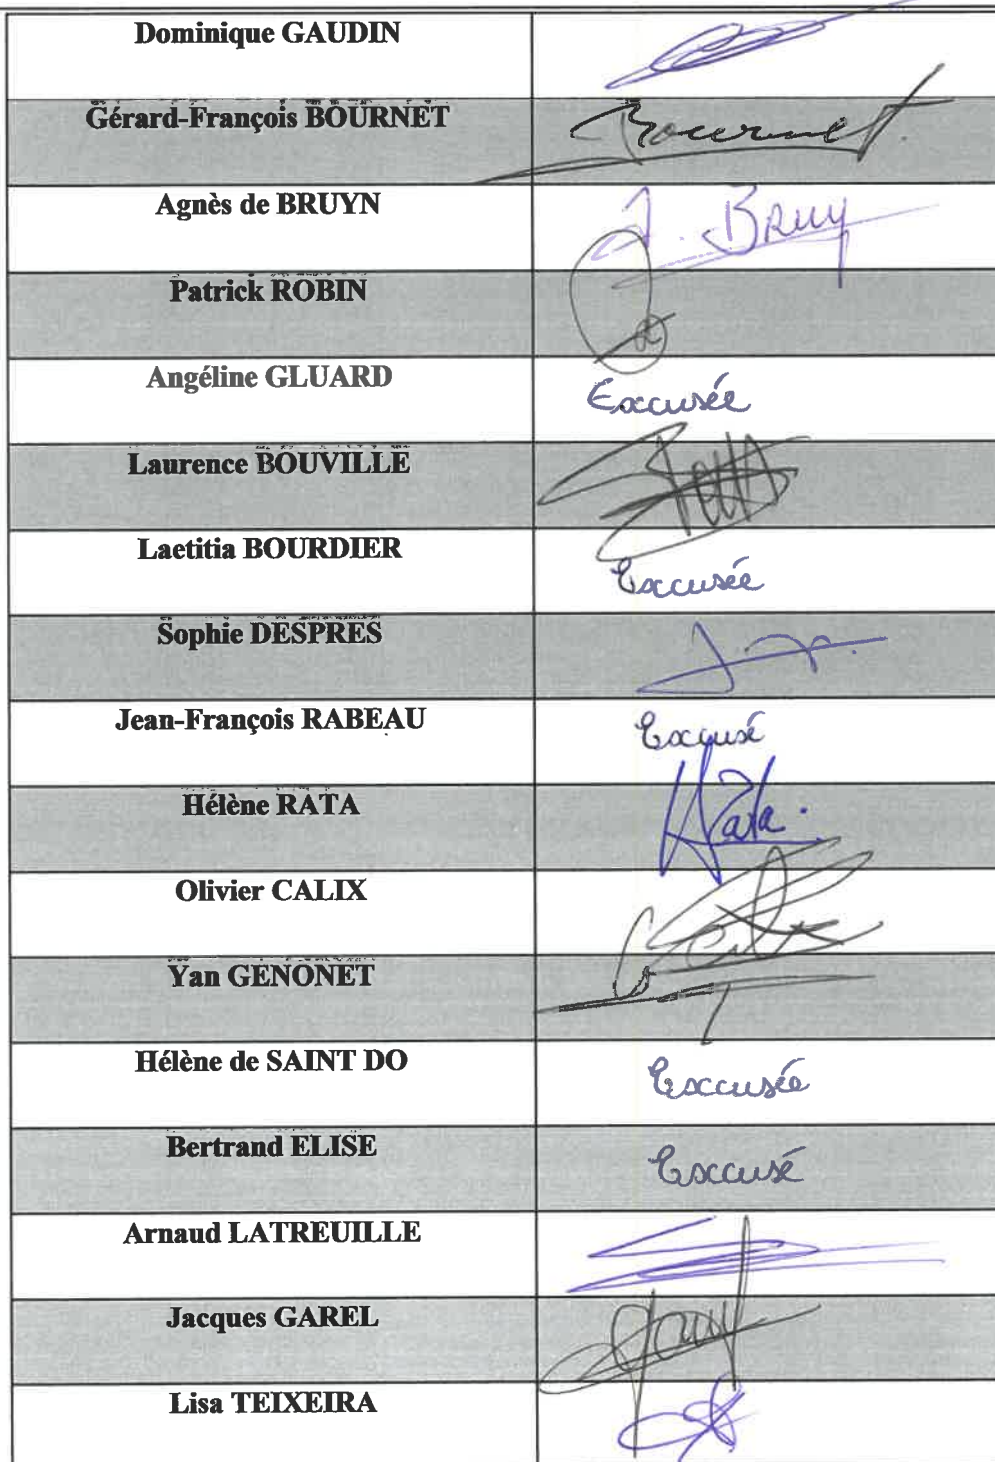 Dominique GAUDIN
Gérard-François BOURNET
Bournet
Agnès de BRUYN
A. Bruy
Patrick ROBIN
Angéline GLUARD
Excusée
Laurence BOUVILLE
Laetitia BOURDIER
Excusée
Sophie DESPRES
Jean-François RABEAU
Excusé
Hélène RATA
H Rata.
Olivier CALIX
Yan GENONET
Hélène de SAINT DO
Excusée
Bertrand ELISE
Excusé
Arnaud LATREUILLE
Jacques GAREL
Lisa TEIXEIRA